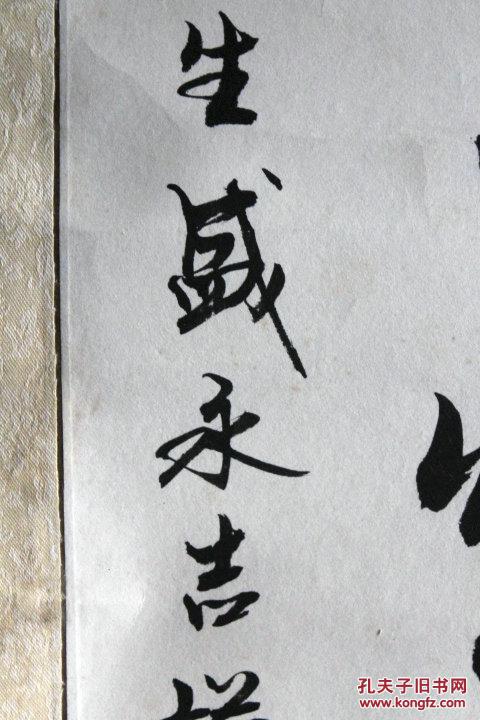 生盛永吉
孔夫子旧书网
www.kongfz.com